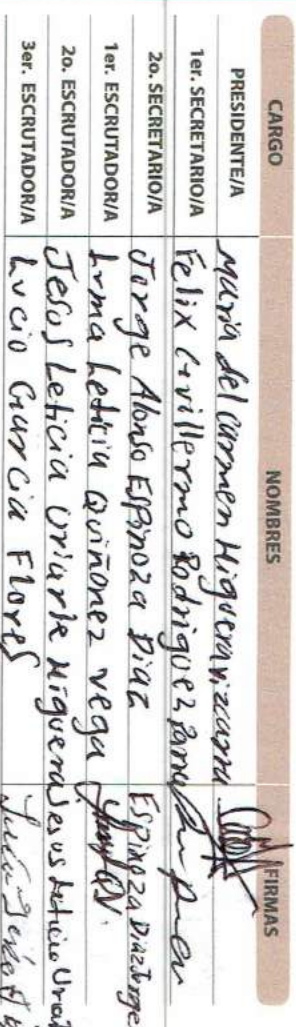 CARGO NOMBRES FIRMAS
PRESIDENTE/A Maria del Carmen Higuera
1er. SECRETARIO/A Felix Guillermo Rodriguez
2o. SECRETARIO/A Jorge Alonso Espinoza Diaz Espinoza Diaz Jorge
1er. ESCRUTADOR/A Irma Leticia Quiñonez Vega
2o. ESCRUTADOR/A Jesus Leticia Uriarte Higuera Jesus Leticia
3er. ESCRUTADOR/A Lucio Garcia Flores